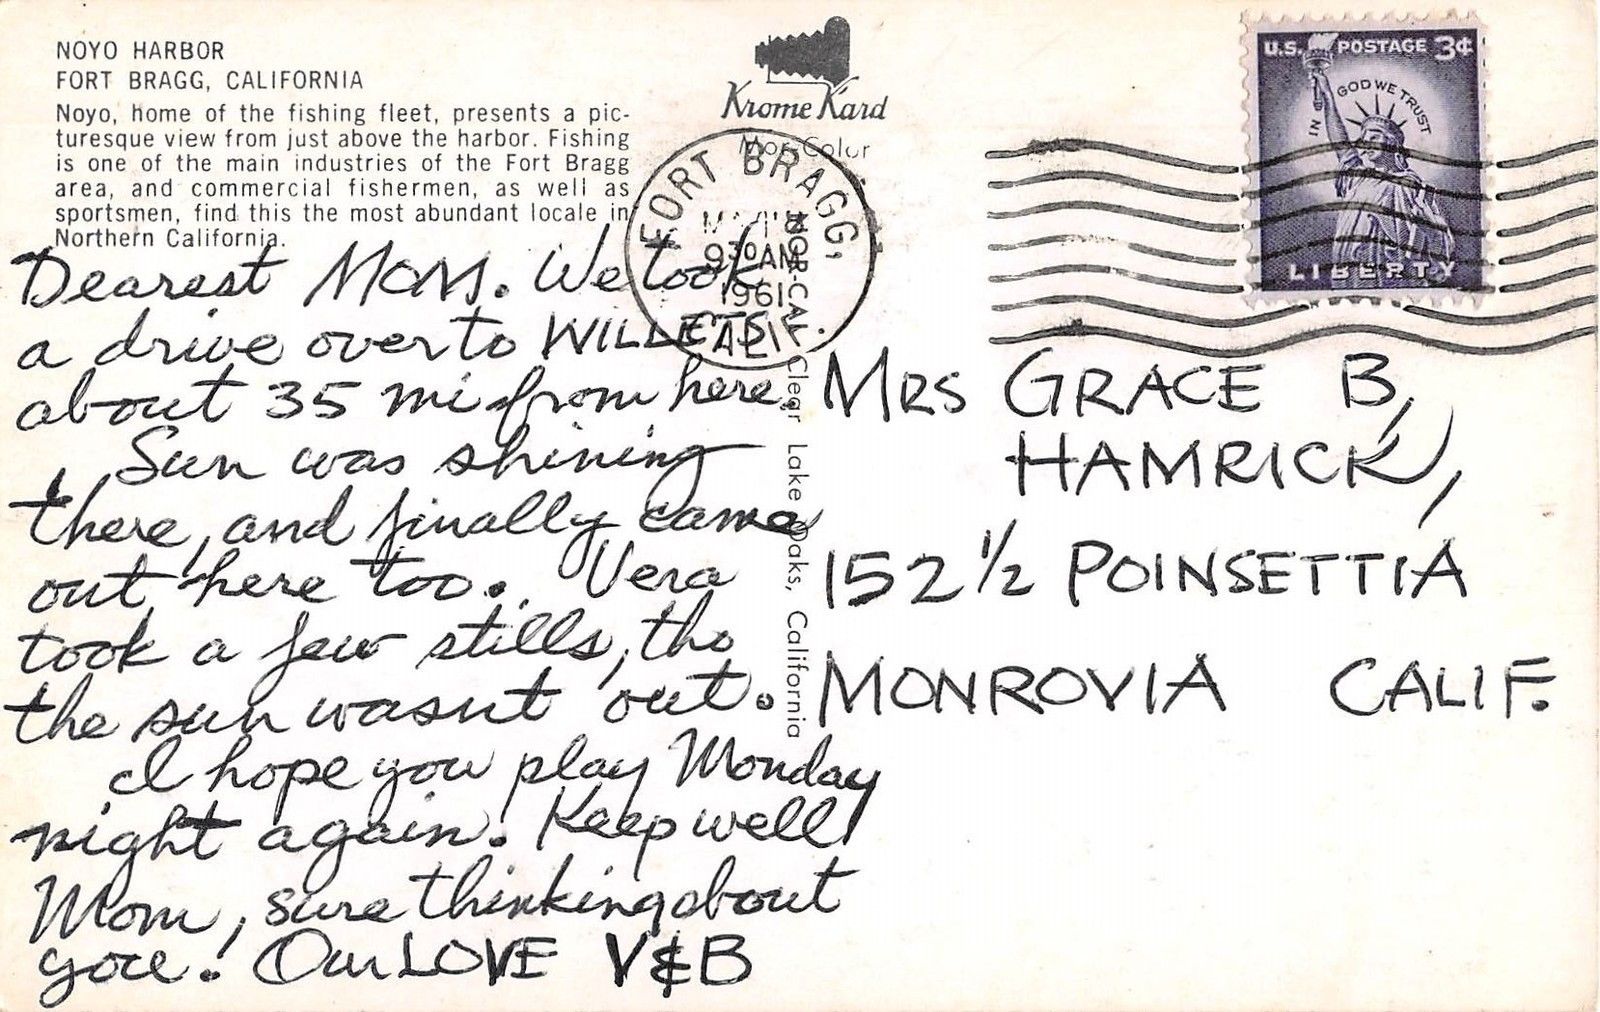 NOYO HARBOR
FORT BRAGG, CALIFORNIA
Noyo, home of the fishing fleet, presents a pic-
turesque view from just above the harbor. Fishing
is one of the main industries of the Fort Bragg
area, and commercial fishermen, as well as
sportsmen, find this the most abundant locale in
Northern California.
Dearest MOM. We took
a drive over to WILLETS
about 35 mi from here.
Sun was shining
there, and finally came
out here too. Vera
took a few stills, tho
the sun wasnt out.
I hope you play Monday
night again. Keep well
Mom, sure thinking about
you. Our LOVE V&B
Krome Kard
Color
FORT BRAGG,
930AM
1961
CALIF.
NOR-CAL Clear Lake Oaks, California
U.S. POSTAGE 3¢
IN GOD WE TRUST
LIBERTY
MRS GRACE B,
HAMRICK,
152 1/2 POINSETTIA
MONROVIA CALIF.